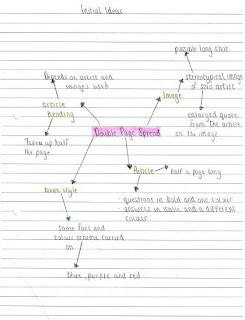 Initial Ideas
possible long shot
stereotypical image
of solo artist
Depends on artist and
images used
Image
article
heading
enlarged quote
from the artist
on the image
Double Page Spread
Takes up half
the page
Article
half a page long
house style
- questions in bold and one colour
- answers in italic and a different
colour
same font and
colour scheme carried
on
blue, purple and red